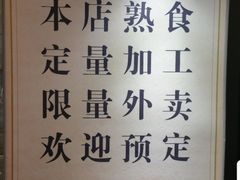 本店熟食
定量加工
限量外卖
欢迎预定